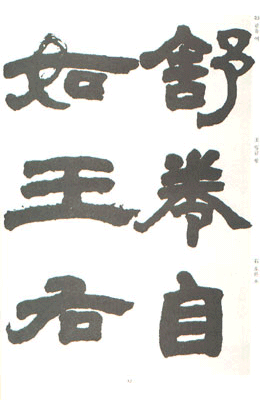 舒卷自
如王右